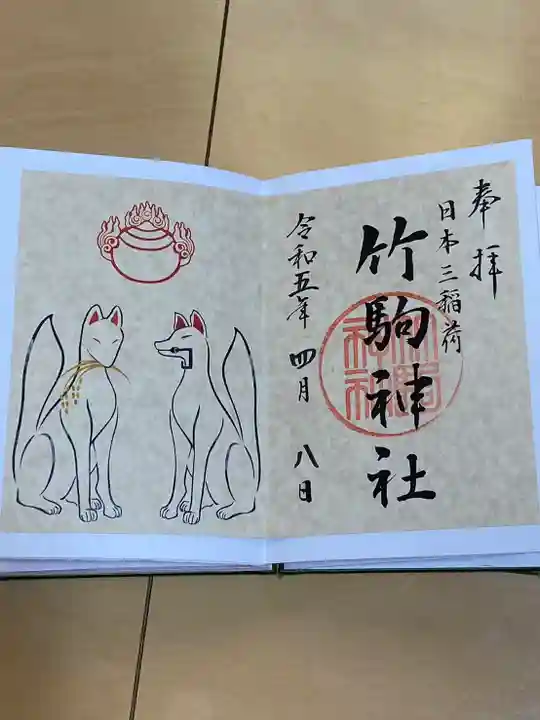 奉拝
日本三稲荷
竹駒神社
令和五年 四月 八日